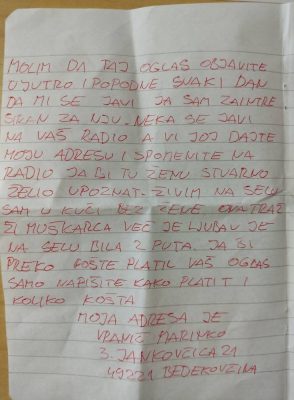 MOLIM DA TAJ OGLAS OBJAVITE
UJUTRO I POPODNE SVAKI DAN
DA MI SE JAVI JA SAM ZAINTRE
SIRAN ZA NJU. NEKA SE JAVI
NA VAŠ RADIO A VI JOJ DAJTE
MOJU ADRESU I SPOMENITE NA
RADIO JA BI TU ŽENU STVARNO
ŽELIO UPOZNAT. ŽIVIM NA SELU
SAM U KUČI BEZ ŽENE ONA TRAŽ
ŽI MUŠKARCA VEČ JE LJUBAV JE
NA SELU BILA 2 PUTA. JA BI
PREKO POŠTE PLATIL VAŠ OGLAS
SAMO NAPIŠITE KAKO PLATIT I
KOLIKO KOSTA
MOJA ADRESA JE
VRANIČ MARINKO
3. JANKOVČICA 21
49221 BEDEKOVČINA